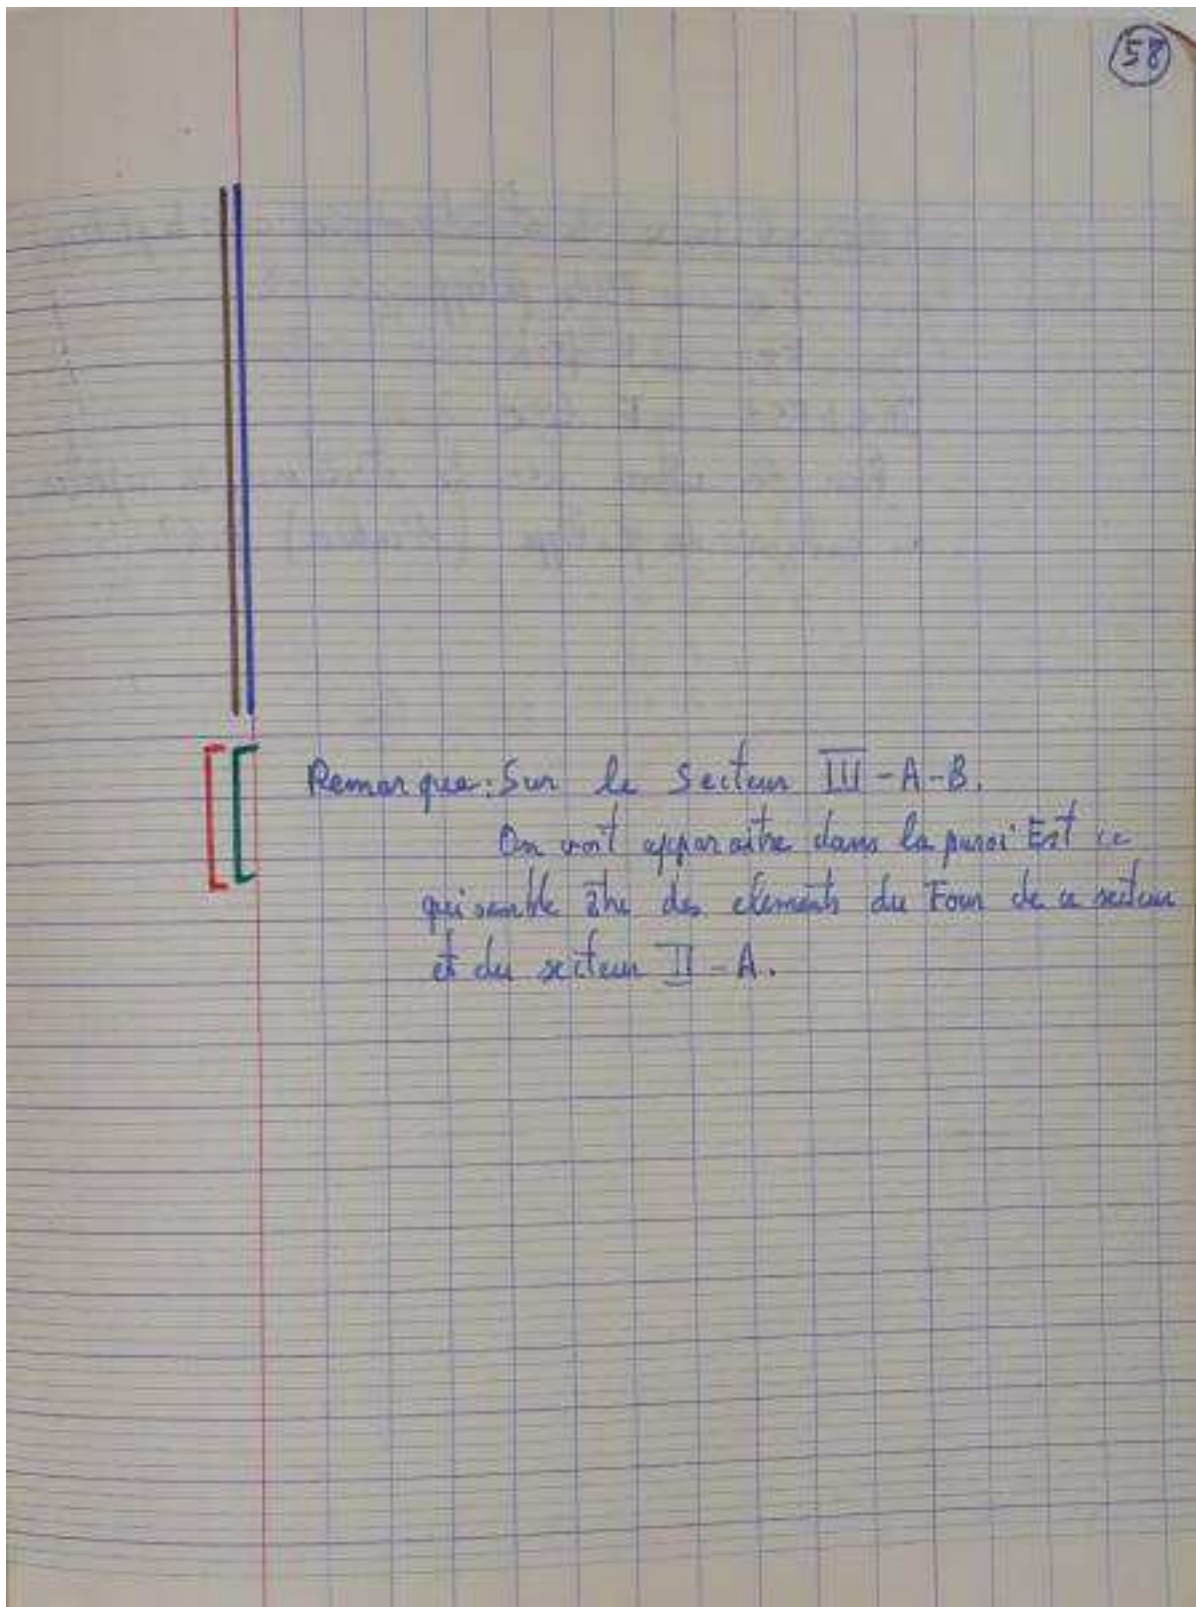 58
Remarque: Sur le Secteur III-A-B.
On voit apparaitre dans la paroi Est ce
qui semble être des elements du Four de ce secteur
et du secteur II-A.